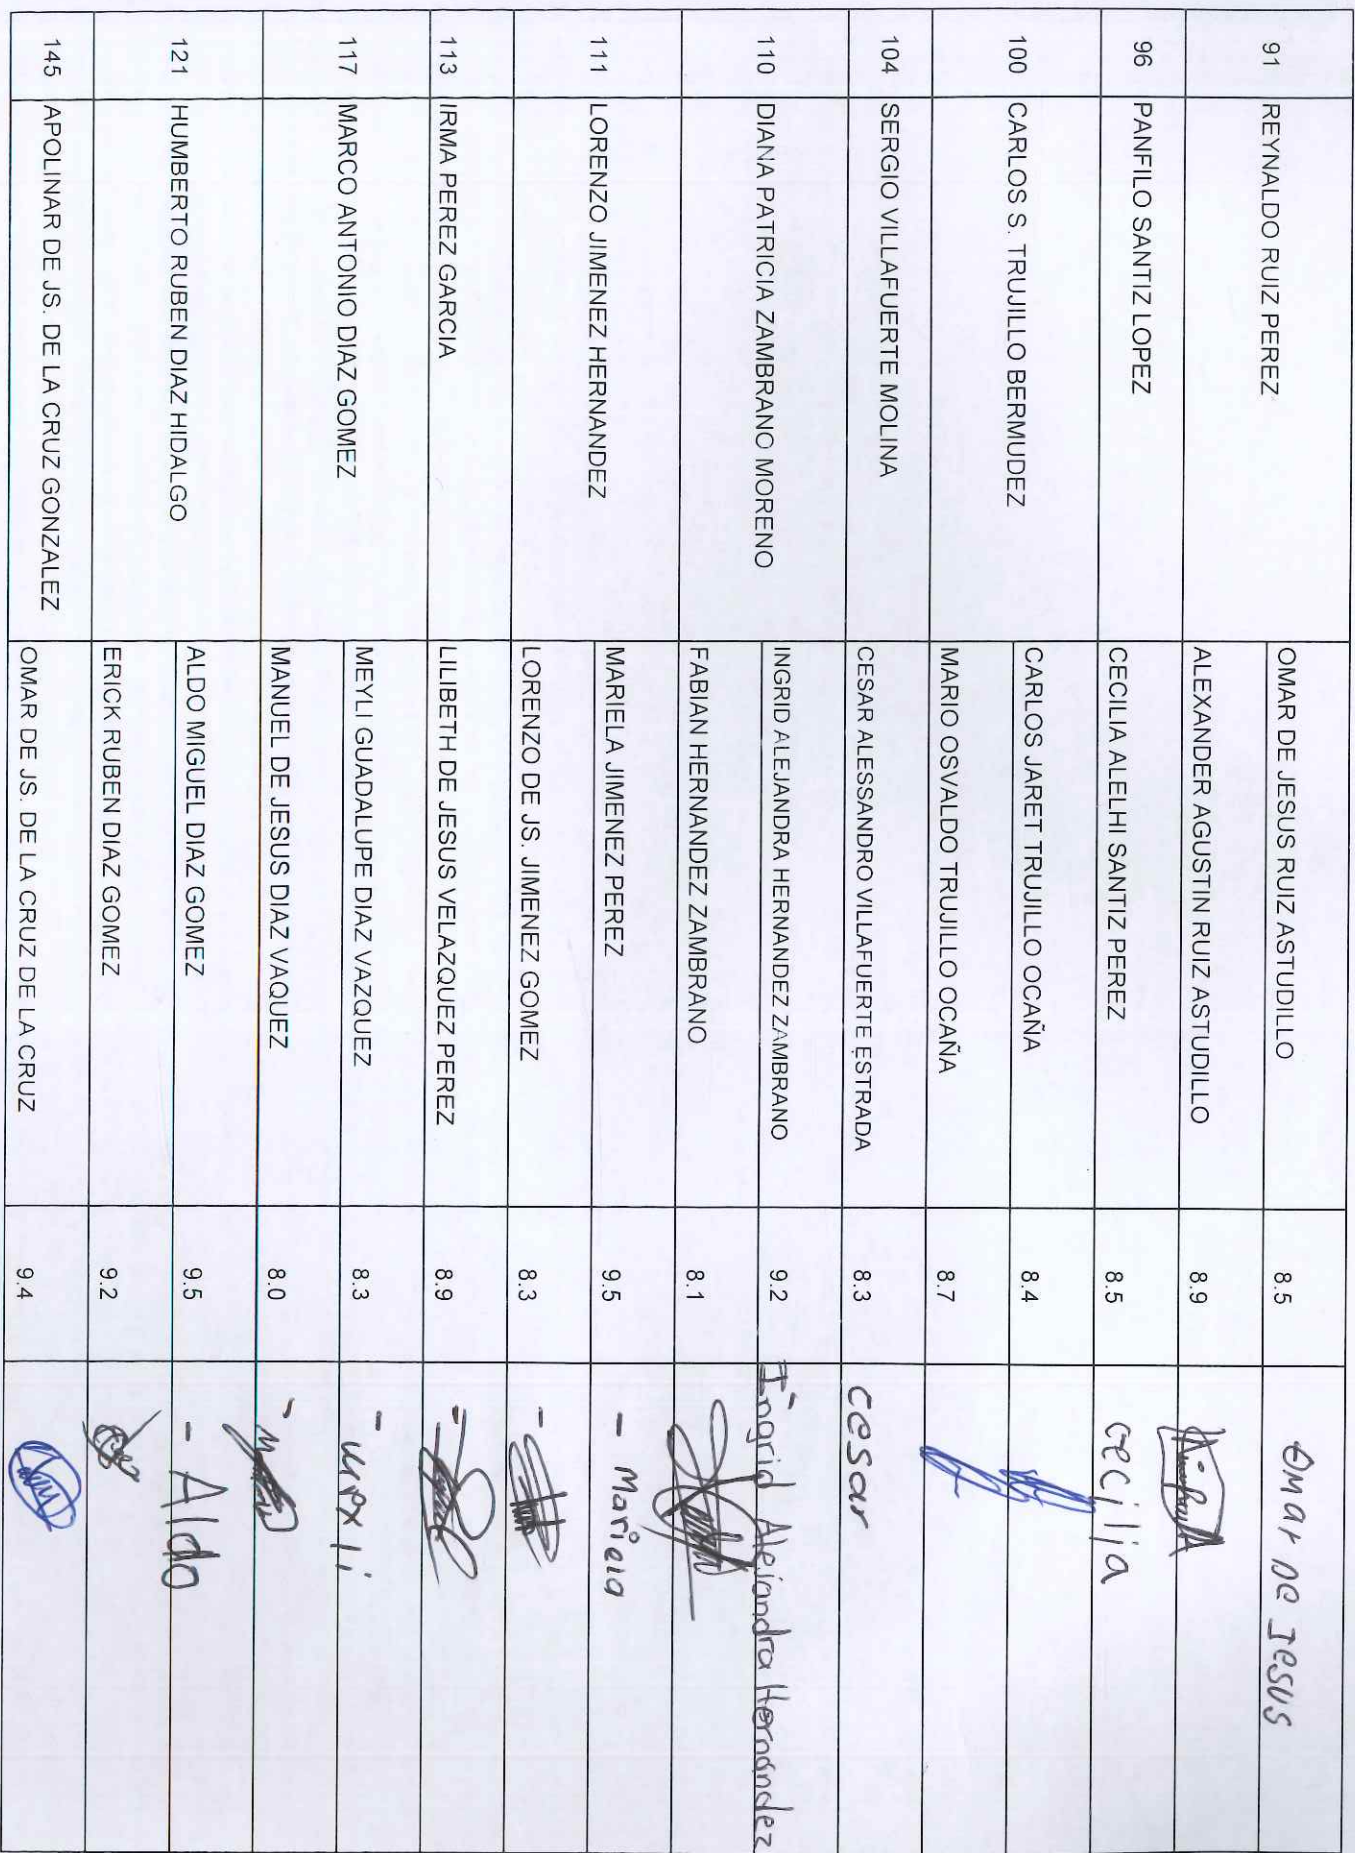 91 REYNALDO RUIZ PEREZ OMAR DE JESUS RUIZ ASTUDILLO 8.5 OMAR DE JESUS
ALEXANDER AGUSTIN RUIZ ASTUDILLO 8.9
96 PANFILO SANTIZ LOPEZ CECILIA ALELHI SANTIZ PEREZ 8.5 cecilia
100 CARLOS S. TRUJILLO BERMUDEZ CARLOS JARET TRUJILLO OCAÑA 8.4
MARIO OSVALDO TRUJILLO OCAÑA 8.7
104 SERGIO VILLAFUERTE MOLINA CESAR ALESSANDRO VILLAFUERTE ESTRADA 8.3 cesar
110 DIANA PATRICIA ZAMBRANO MORENO INGRID ALEJANDRA HERNANDEZ ZAMBRANO 9.2 Ingrid Alejandra Hernández
FABIAN HERNANDEZ ZAMBRANO 8.1
111 LORENZO JIMENEZ HERNANDEZ MARIELA JIMENEZ PEREZ 9.5 - Mariela
LORENZO DE JS. JIMENEZ GOMEZ 8.3 -
113 IRMA PEREZ GARCIA LILIBETH DE JESUS VELAZQUEZ PEREZ 8.9 -
117 MARCO ANTONIO DIAZ GOMEZ MEYLI GUADALUPE DIAZ VAZQUEZ 8.3 -
MANUEL DE JESUS DIAZ VAQUEZ 8.0 -
121 HUMBERTO RUBEN DIAZ HIDALGO ALDO MIGUEL DIAZ GOMEZ 9.5 - Aldo
ERICK RUBEN DIAZ GOMEZ 9.2
145 APOLINAR DE JS. DE LA CRUZ GONZALEZ OMAR DE JS. DE LA CRUZ DE LA CRUZ 9.4